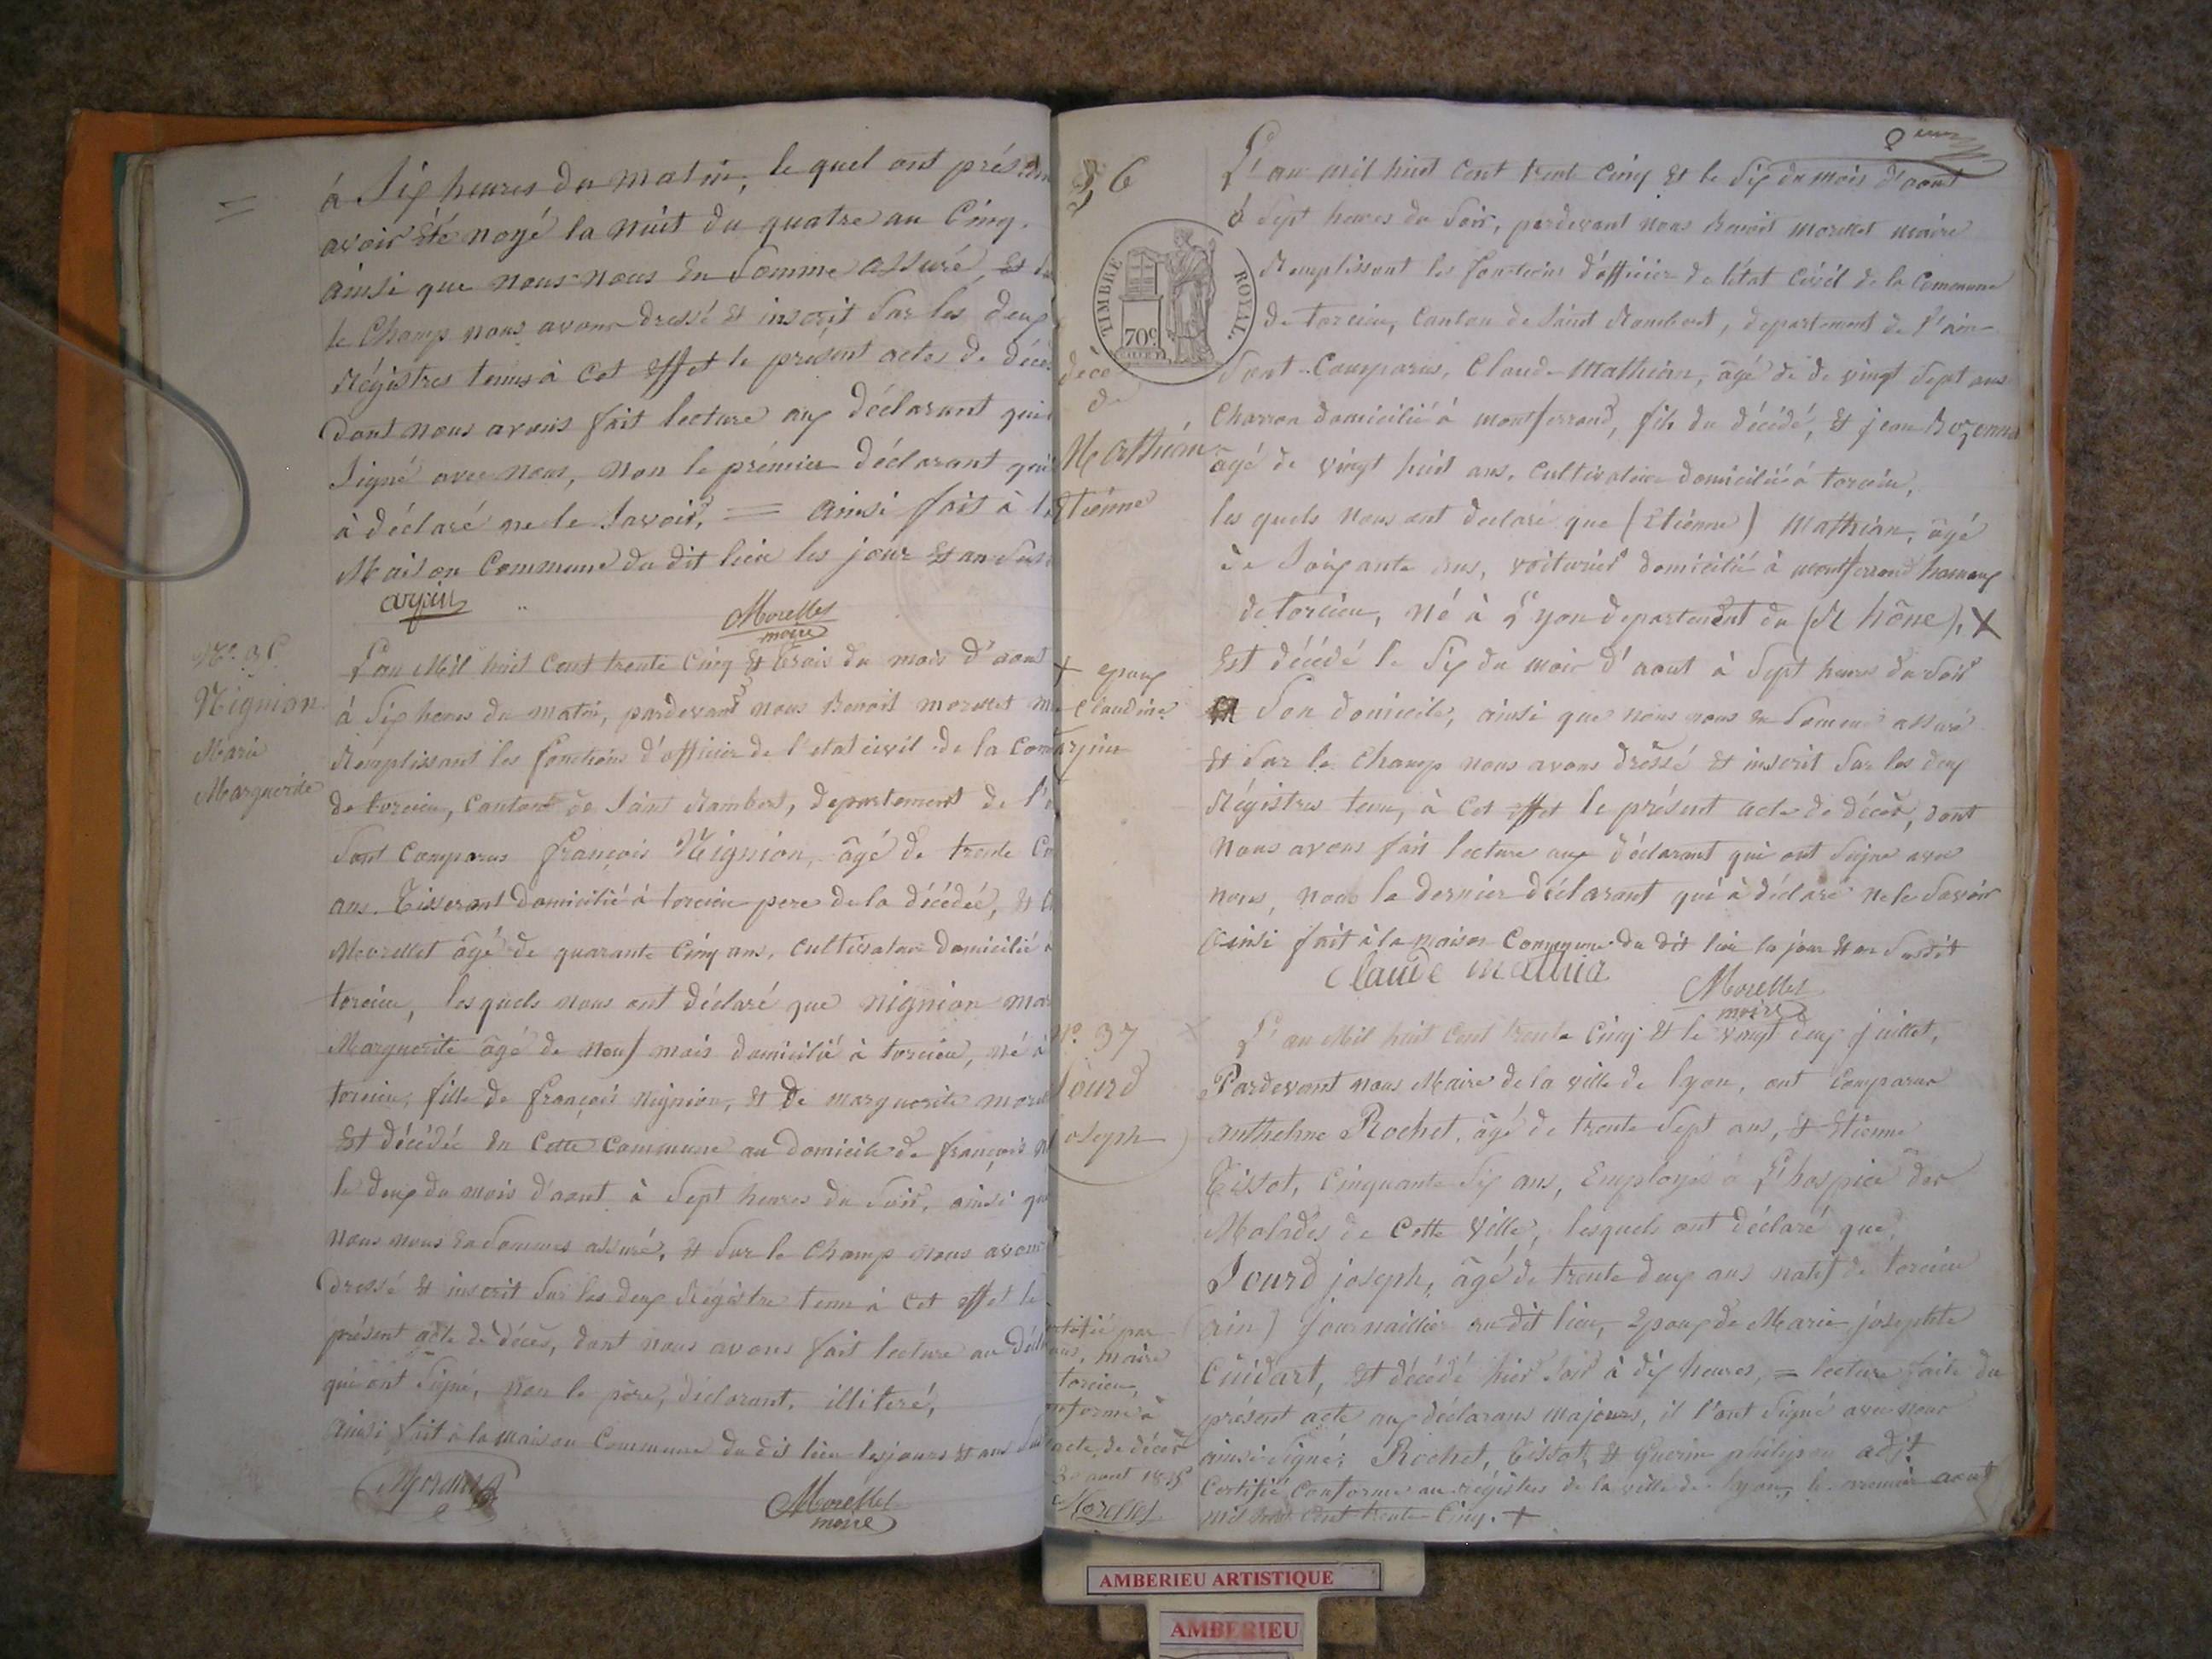 à Six heures du matin, le quel ont prés
avoir été noyé la nuit du quatre au Cinq.
ainsi que nous nous En Somme assuré, et Sur
le Champ nous avons dressé et inscrit Sur les deux
Régistres tenus à Cet Effet le présent actes de décès
dont nous avons fait lecture aux Déclarant qui
Signé avec nous, Non le prémier Déclarant qui
à déclaré ne le Savoir, = ainsi fait à la
Maison Commune du dit lieu les jour Et an Sus
arpin
Morellet
maire
Nignion
Marie
Marguerite
L'an Mil huit Cent trente Cinq Et trois du mois d'aout
à Six heures du matin, pardevant nous Benoit morellet m
Remplissant les fonctions d'officier de l'etat civil de la Com
de torcieu, Canton de Saint Rambert, departement de l'
Sont Comparus françois Nignion, âgé de trente C
ans. Tisserant domicilié à torcieu pere de la décédée, Et
Morellet âgé de quarante Cinq ans, Cultivateur domicilié à
torcieu, lesquels nous ont déclaré que nignion mar
Marguerite âgé de neuf mois domicilié à torcieu, né à
torcieu, fille de françois nignion, Et de marguerite morel
Est décédée En Cette Commune au domicile de françois
le deux du mois d'aout à Sept heures du Soir, ainsi que
nous nous En Sommes assuré, Et Sur le Champ nous avons
dressé Et inscrit Sur les deux Régistre tenu à Cet effet le
présent acte de décès, dont nous avons fait lecture au Décl
qui ont Signé, non le père, déclarant, illitéré,
ainsi fait à la maison Commune du dit lieu les jours Et ans Sus
Morellet
maire
36
TIMBRE ROYAL.
70c
décè
de
Mathian
Etiénne
+ epoux
Claudine
arpin
L'an mil huit Cent trente Cinq Et le Six du mois d'aout
à Sept heures du Soir, pardevant nous Benoit morellet maire
Remplissant les fonctions d'officier de l'état Civil de la Commune
de torcieu, Canton de Saint Rambert, departement de l'ain
Sont Comparus, Claude Mathian, âgé de de vingt Sept ans
Charron domicilié à montferrand, fils du décédé, Et jean
âgé de vingt huit ans, Cultivateur domicilié à torcieu,
les quels nous ont declaré que (Etiénne) Mathian, âgé
de Soixante ans, voiturier domicilié à montferrand hameaux
de torcieu, né à Lyon departement du (Rhône), X
Est décédé le Six du mois d'aout à Sept heures du Soir
Son domicile, ainsi que nous nous en Sommes assuré
Et Sur le Champ nous avons dressé Et inscrit Sur les deux
Régistres tenu, à Cet effet le présent acte de décès, dont
nous avons fait lecture aux déclarant qui ont Signé avec
nous, non le dernier déclarant qui à déclaré ne le Savoir
ainsi fait à la maison Commune du dit lieu le jour Et an Susdit
Claude mathia
Morellet
maire
No. 37
Jourd
joseph
L'an Mil huit Cent trente Cinq Et le vingt deux juillet,
Pardevant nous Maire de la ville de lyon, ont Comparus
anthelme Rochet, âgé de trente Sept ans, Et Etienne
Tissot, Cinquante Six ans, Employés à L'hospice des
Malades de Cette ville, lesquels ont déclaré que
Jourd joseph, âgé de trente deux ans natif de torcieu
(ain) journaillier au dit lieu, Epoux de Marie joséphte
Cuidart, Est décédé hier Soir à dix heures, = lecture faite du
présent acte aux déclarans majeurs, il l'ont Signé avec nous
ainsi Signé; Rochet, Tissot, Et Guerin philipon adjt
Certifié Conforme au régistres de la ville de lyon, le premier aout
mil huit Cent trente Cinq. +
maire
torcieu,
acte de décès
aout 1835
Morellet
AMBERIEU ARTISTIQUE
AMBERIEU